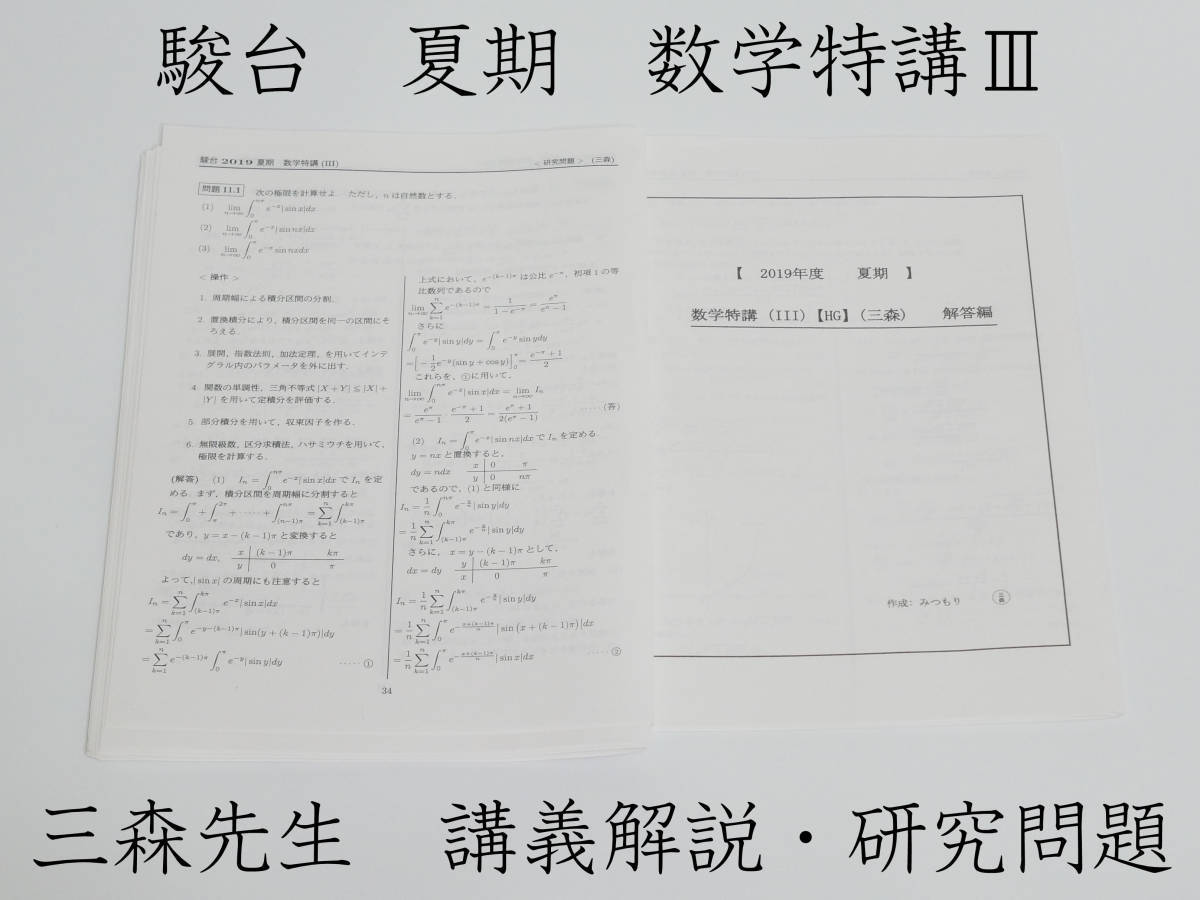 駿台 夏期 数学特講Ⅲ
駿台 2019 夏期 数学特講 (III)
< 研究問題 > (三森)
問題 11.1 次の極限を計算せよ. ただし, n は自然数とする.
(1) lim_{n→∞} ∫_0^{nπ} e^{-x}|sin x|dx
(2) lim_{n→∞} ∫_0^{π} e^{-x}|sin nx|dx
(3) lim_{n→∞} ∫_0^{π} e^{-x} sin nxdx
< 操作 >
1. 周期幅による積分区間の分割.
2. 置換積分により, 積分区間を同一の区間にそ
ろえる.
3. 展開, 指数法則, 加法定理, を用いてインテ
グラル内のパラメータを外に出す.
4 関数の単調性, 三角不等式 |X + Y| ≦ |X| +
|Y| を用いて定積分を評価する.
5. 部分積分を用いて, 収束因子を作る.
6. 無限級数, 区分求積法, ハサミウチを用いて,
極限を計算する.
(解答) (1) I_n = ∫_0^{nπ} e^{-x}|sin x|dx で I_n を定
める. まず, 積分区間を周期幅に分割すると
I_n = ∫_0^{π} + ∫_π^{2π} + ‥‥‥ + ∫_{(n-1)π}^{nπ} = Σ_{k=1}^{n} ∫_{(k-1)π}^{kπ}
であり, y = x − (k − 1)π と変換すると
dy = dx, x | (k − 1)π kπ
y | 0 π
よって, |sin x| の周期にも注意すると
I_n = Σ_{k=1}^{n} ∫_{(k-1)π}^{kπ} e^{-x}|sin x|dx
= Σ_{k=1}^{n} ∫_0^{π} e^{-y-(k-1)π}|sin(y + (k − 1)π)|dy
= Σ_{k=1}^{n} e^{-(k-1)π} ∫_0^{π} e^{-y}|sin y|dy ‥‥‥①
上式において, e^{-(k-1)π} は公比 e^{-π}, 初項 1 の等
比数列であるので
lim_{n→∞} Σ_{k=1}^{n} e^{-(k-1)π} = 1/(1 − e^{-π}) = e^π/(e^π − 1)
さらに
∫_0^{π} e^{-y}|sin y|dy = ∫_0^{π} e^{-y} sin ydy
= [−1/2 e^{-y}(sin y + cos y)]_0^{π} = (e^{-π} + 1)/2
これらを, ①に用いて,
lim_{n→∞} ∫_0^{nπ} e^{-x}|sin x|dx = lim_{n→∞} I_n
= e^π/(e^π − 1) · (e^{-π} + 1)/2 = (e^π + 1)/(2(e^π − 1)) ‥‥‥(答)
(2) I_n = ∫_0^{π} e^{-x}|sin nx|dx で I_n を定める.
y = nx と置換すると,
dy = ndx x | 0 π
y | 0 nπ
であるので, (1) と同様に
I_n = 1/n ∫_0^{nπ} e^{-y/n}|sin y|dy
= 1/n Σ_{k=1}^{n} ∫_{(k-1)π}^{kπ} e^{-y/n}|sin y|dy
さらに, x = y − (k − 1)π として,
dx = dy y | (k − 1)π kπ
x | 0 π
I_n = 1/n Σ_{k=1}^{n} ∫_{(k-1)π}^{kπ} e^{-y/n}|sin y|dy
= 1/n Σ_{k=1}^{n} ∫_0^{π} e^{-(x+(k-1)π)/n}|sin (x + (k − 1)π)|dx
= 1/n Σ_{k=1}^{n} ∫_0^{π} e^{-(x+(k-1)π)/n}|sin x|dx ‥‥‥②
34
【 2019年度 夏期 】
数学特講 (III)【HG】(三森) 解答編
作成: みつもり
三森先生 講義解説・研究問題